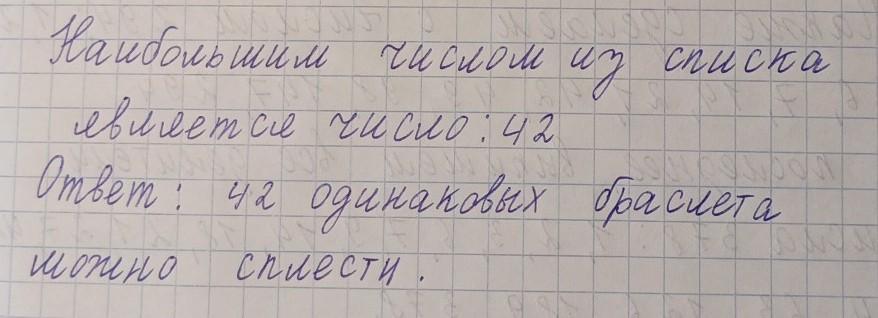 Наибольшим числом из списка
является число: 42
Ответ: 42 одинаковых браслета
можно сплести.